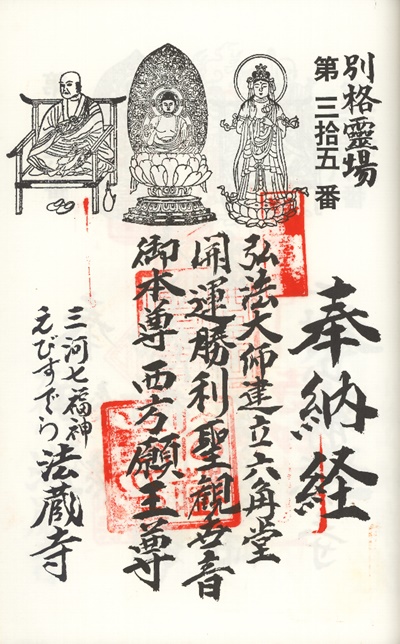 別格霊場
第三拾五番
奉納経
弘法大师建立六角堂
開運勝利聖観世音
御本尊西方願王尊
三河七福神
えびすでら
法蔵寺